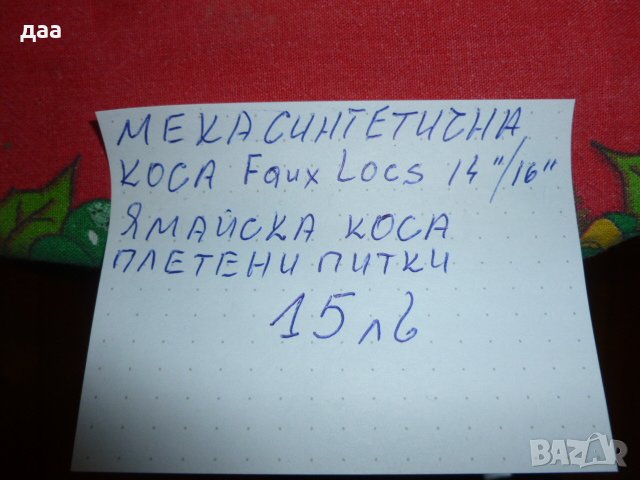 даа
МЕКА СИНТЕТИЧНА
КОСА Faux Locs 14"/16"
ЯМАЙСКА КОСА
ПЛЕТЕНИ ПИТКИ
15 лв
BAZAR